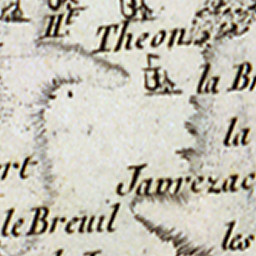 Theon
la B
la
rt
Javrezac
le Breuil
les